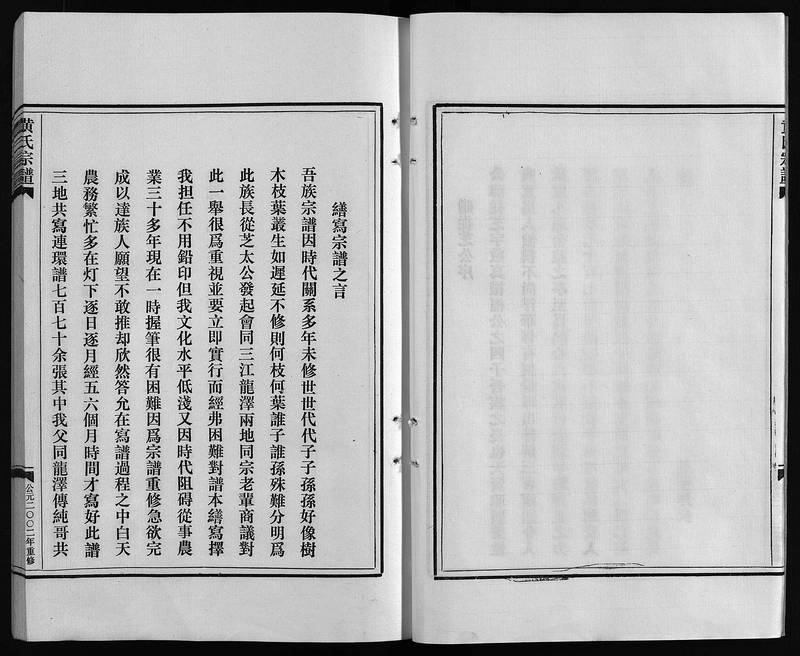 繕寫宗譜之言
吾族宗譜因時代關系多年未修世世代代子子孫孫好像樹
木枝葉叢生如遲延不修則何枝何葉誰子誰孫殊難分明爲
此族長從芝太公發起會同三江龍澤兩地同宗老輩商議對
此一舉很爲重視並要立即實行而經弗困難對譜本繕寫擇
我担任不用鉛印但我文化水平低淺又因時代阻碍從事農
業三十多年現在一時握筆很有困難因爲宗譜重修急欲完
成以達族人願望不敢推却欣然答允在寫譜過程之中白天
農務繁忙多在灯下逐日逐月經五六個月時間才寫好此譜
三地共寫連環譜七百七十余張其中我父同龍澤傳純哥共
黃氏宗譜
公元二〇〇二年重修